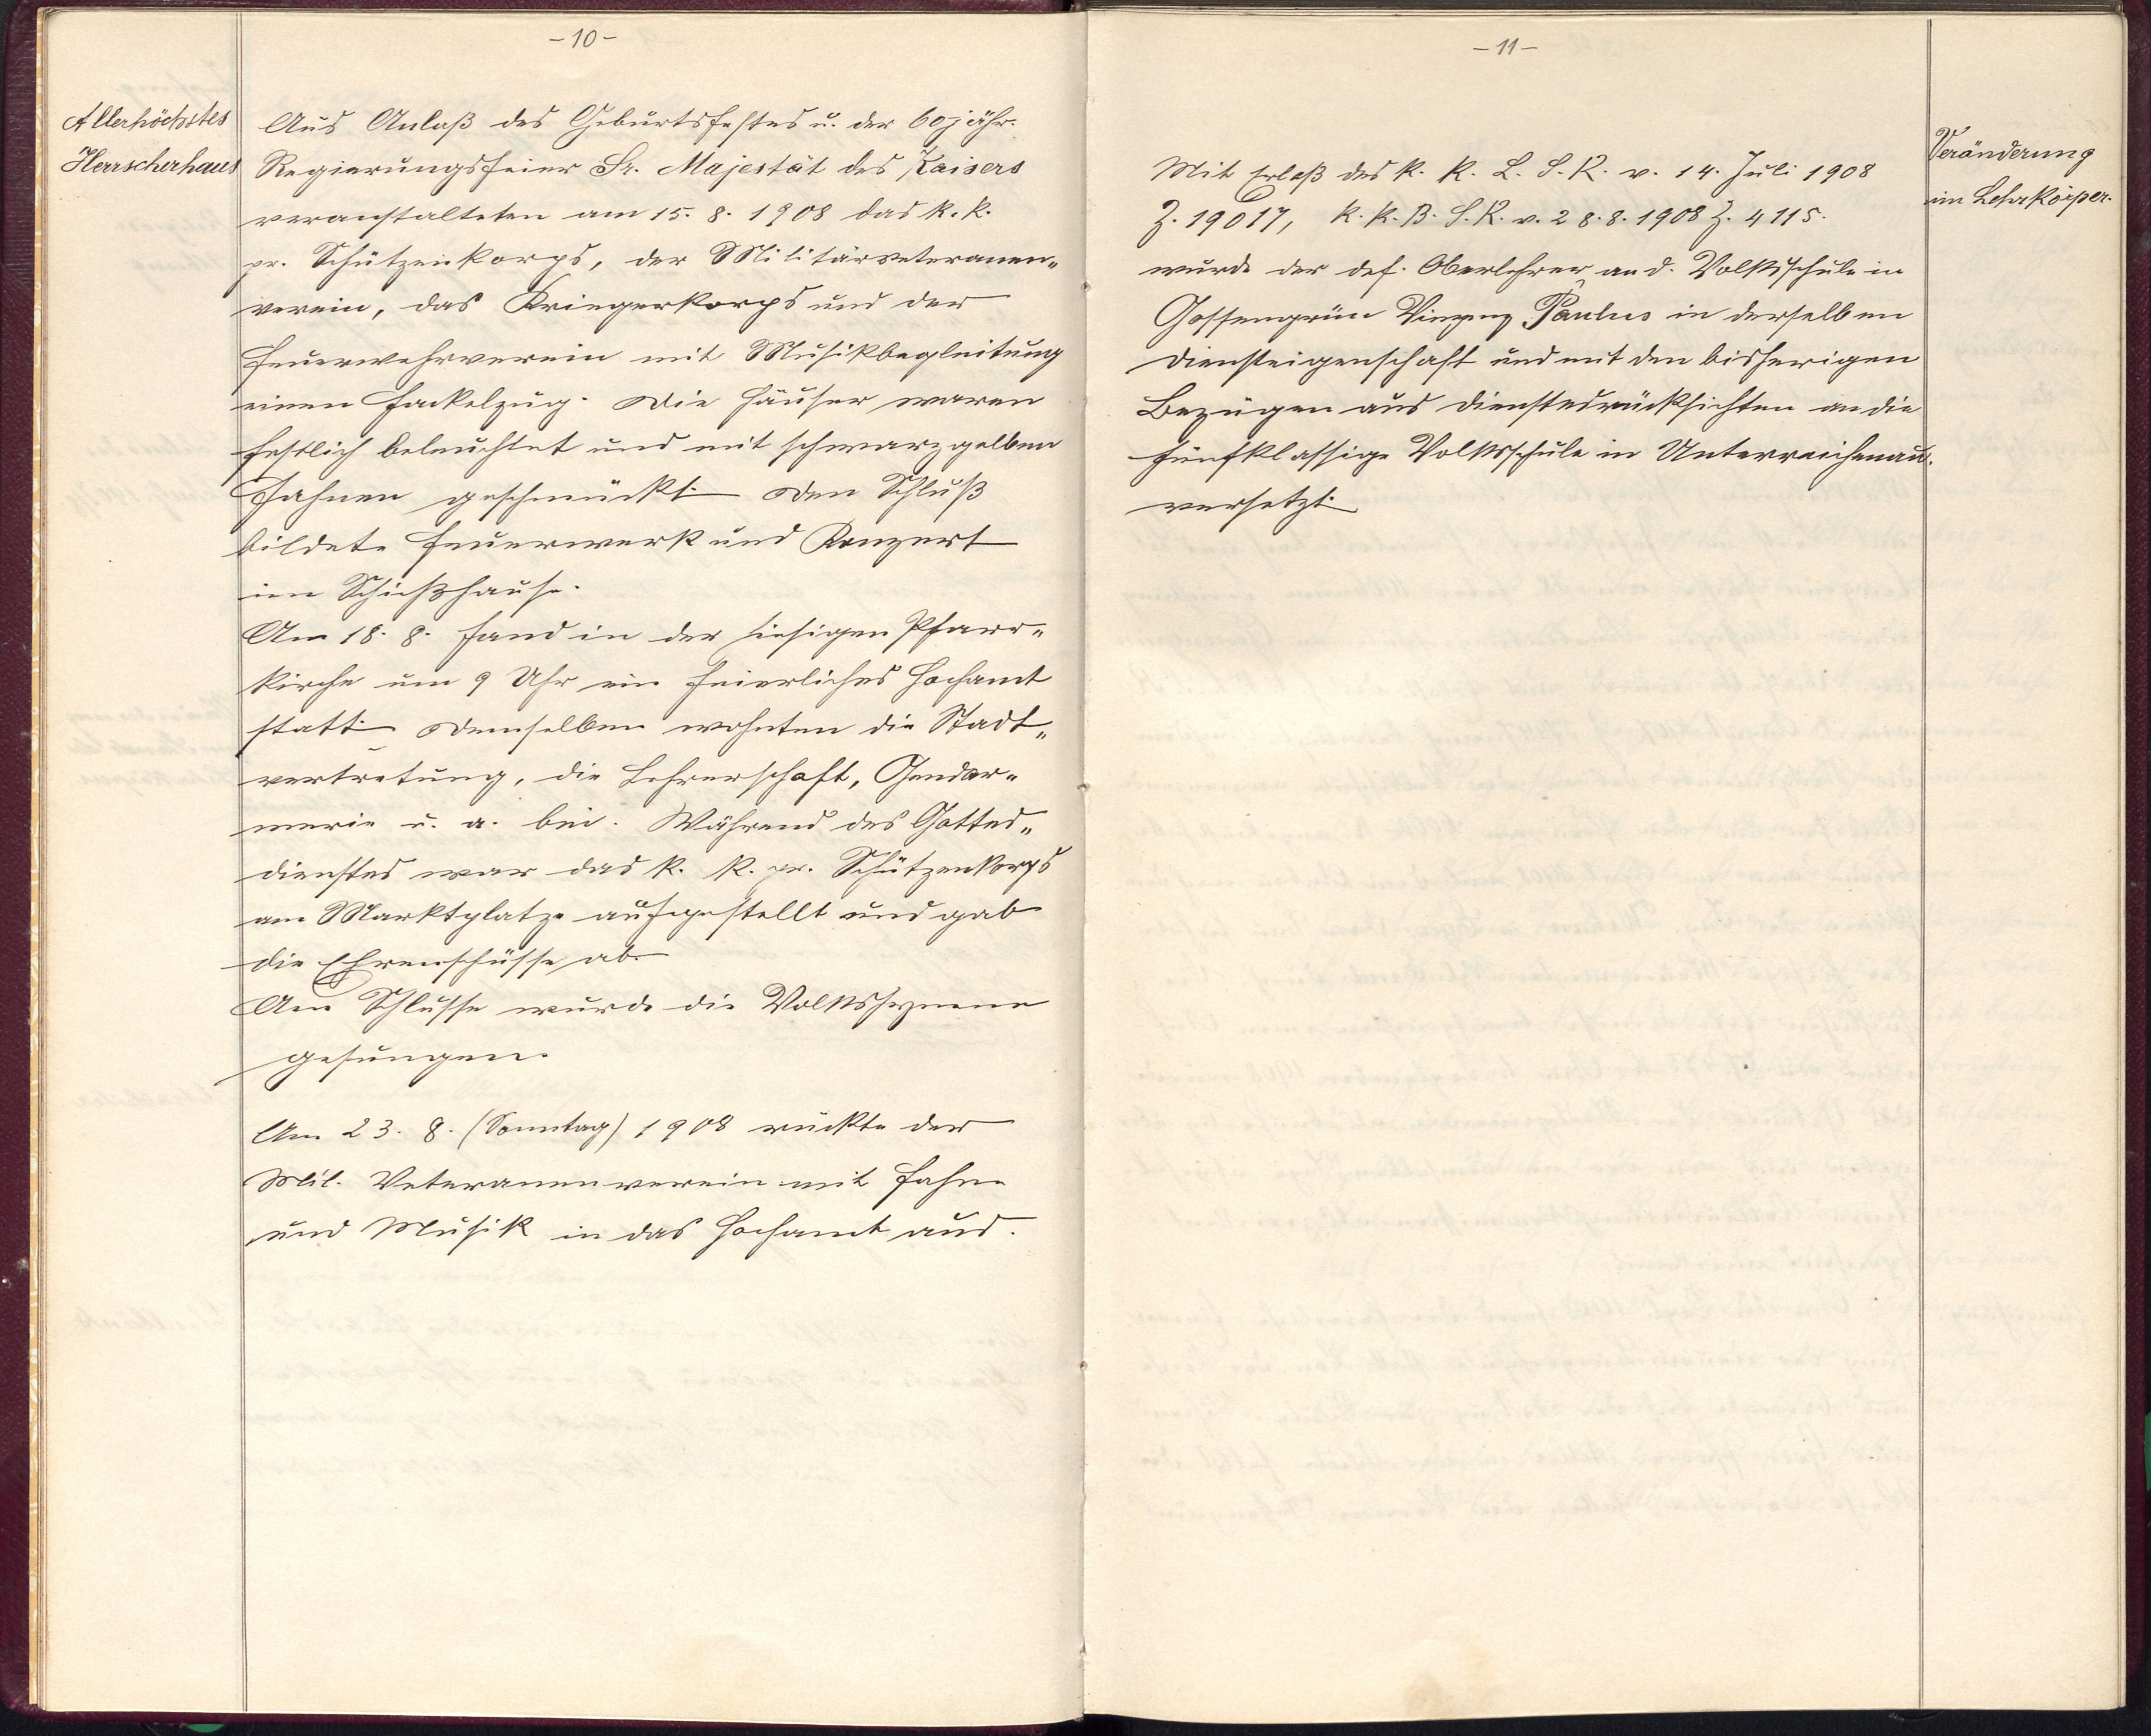 -10-
Allerhöchstes
Herrscherhaus
Aus Anlaß des Geburtsfestes u. der 60jähr.
Regierungsfeier Sr. Majestät des Kaisers
veranstalteten am 15. 8. 1908 das k. k.
pr. Schützenkorps, der Militärveteranen„
verein, das Kriegerkorps und der
Feuerwehrverein mit Musikbegleitung
einen Fackelzug. Die Häuser waren
festlich beleuchtet und mit schwarzgelben
Fahnen geschmückt. Den Schluß
bildete Feuerwerk und Konzert
im Schießhause.
Am 18. 8. fand in der hiesigen Pfarr„
kirche um 9 Uhr ein feierliches Hochamt
statt. Demselben wohnten die Stadt„
vertretung, die Lehrerschaft, Gendar„
merie u. a. bei. Während des Gottes„
dienstes war das k. k. pr. Schützenkorps
am Marktplatze aufgestellt und gab
die Ehrenschüsse ab.
Am Schlusse wurde die Volkshymne
gesungen.
Am 23. 8. (Sonntag) 1908 rückte der
Mil. Veteranenverein mit Fahne
und Musik in das Hochamt aus.
-11-
Veränderung
im Lehrkörper.
Mit Erlaß des k. k. L. S. R. v. 14. Juli 1908
Z. 19017, k. k. B. S. R. v. 28. 8. 1908 Z. 4115.
wurde der def. Oberlehrer an d. Volksschule in
Gossengrün Vinzenz Paulus in derselben
Diensteigenschaft und mit den bisherigen
Bezügen aus Dienstesrücksichten an die
fünfklassige Volksschule in Unterreichenau
versetzt.